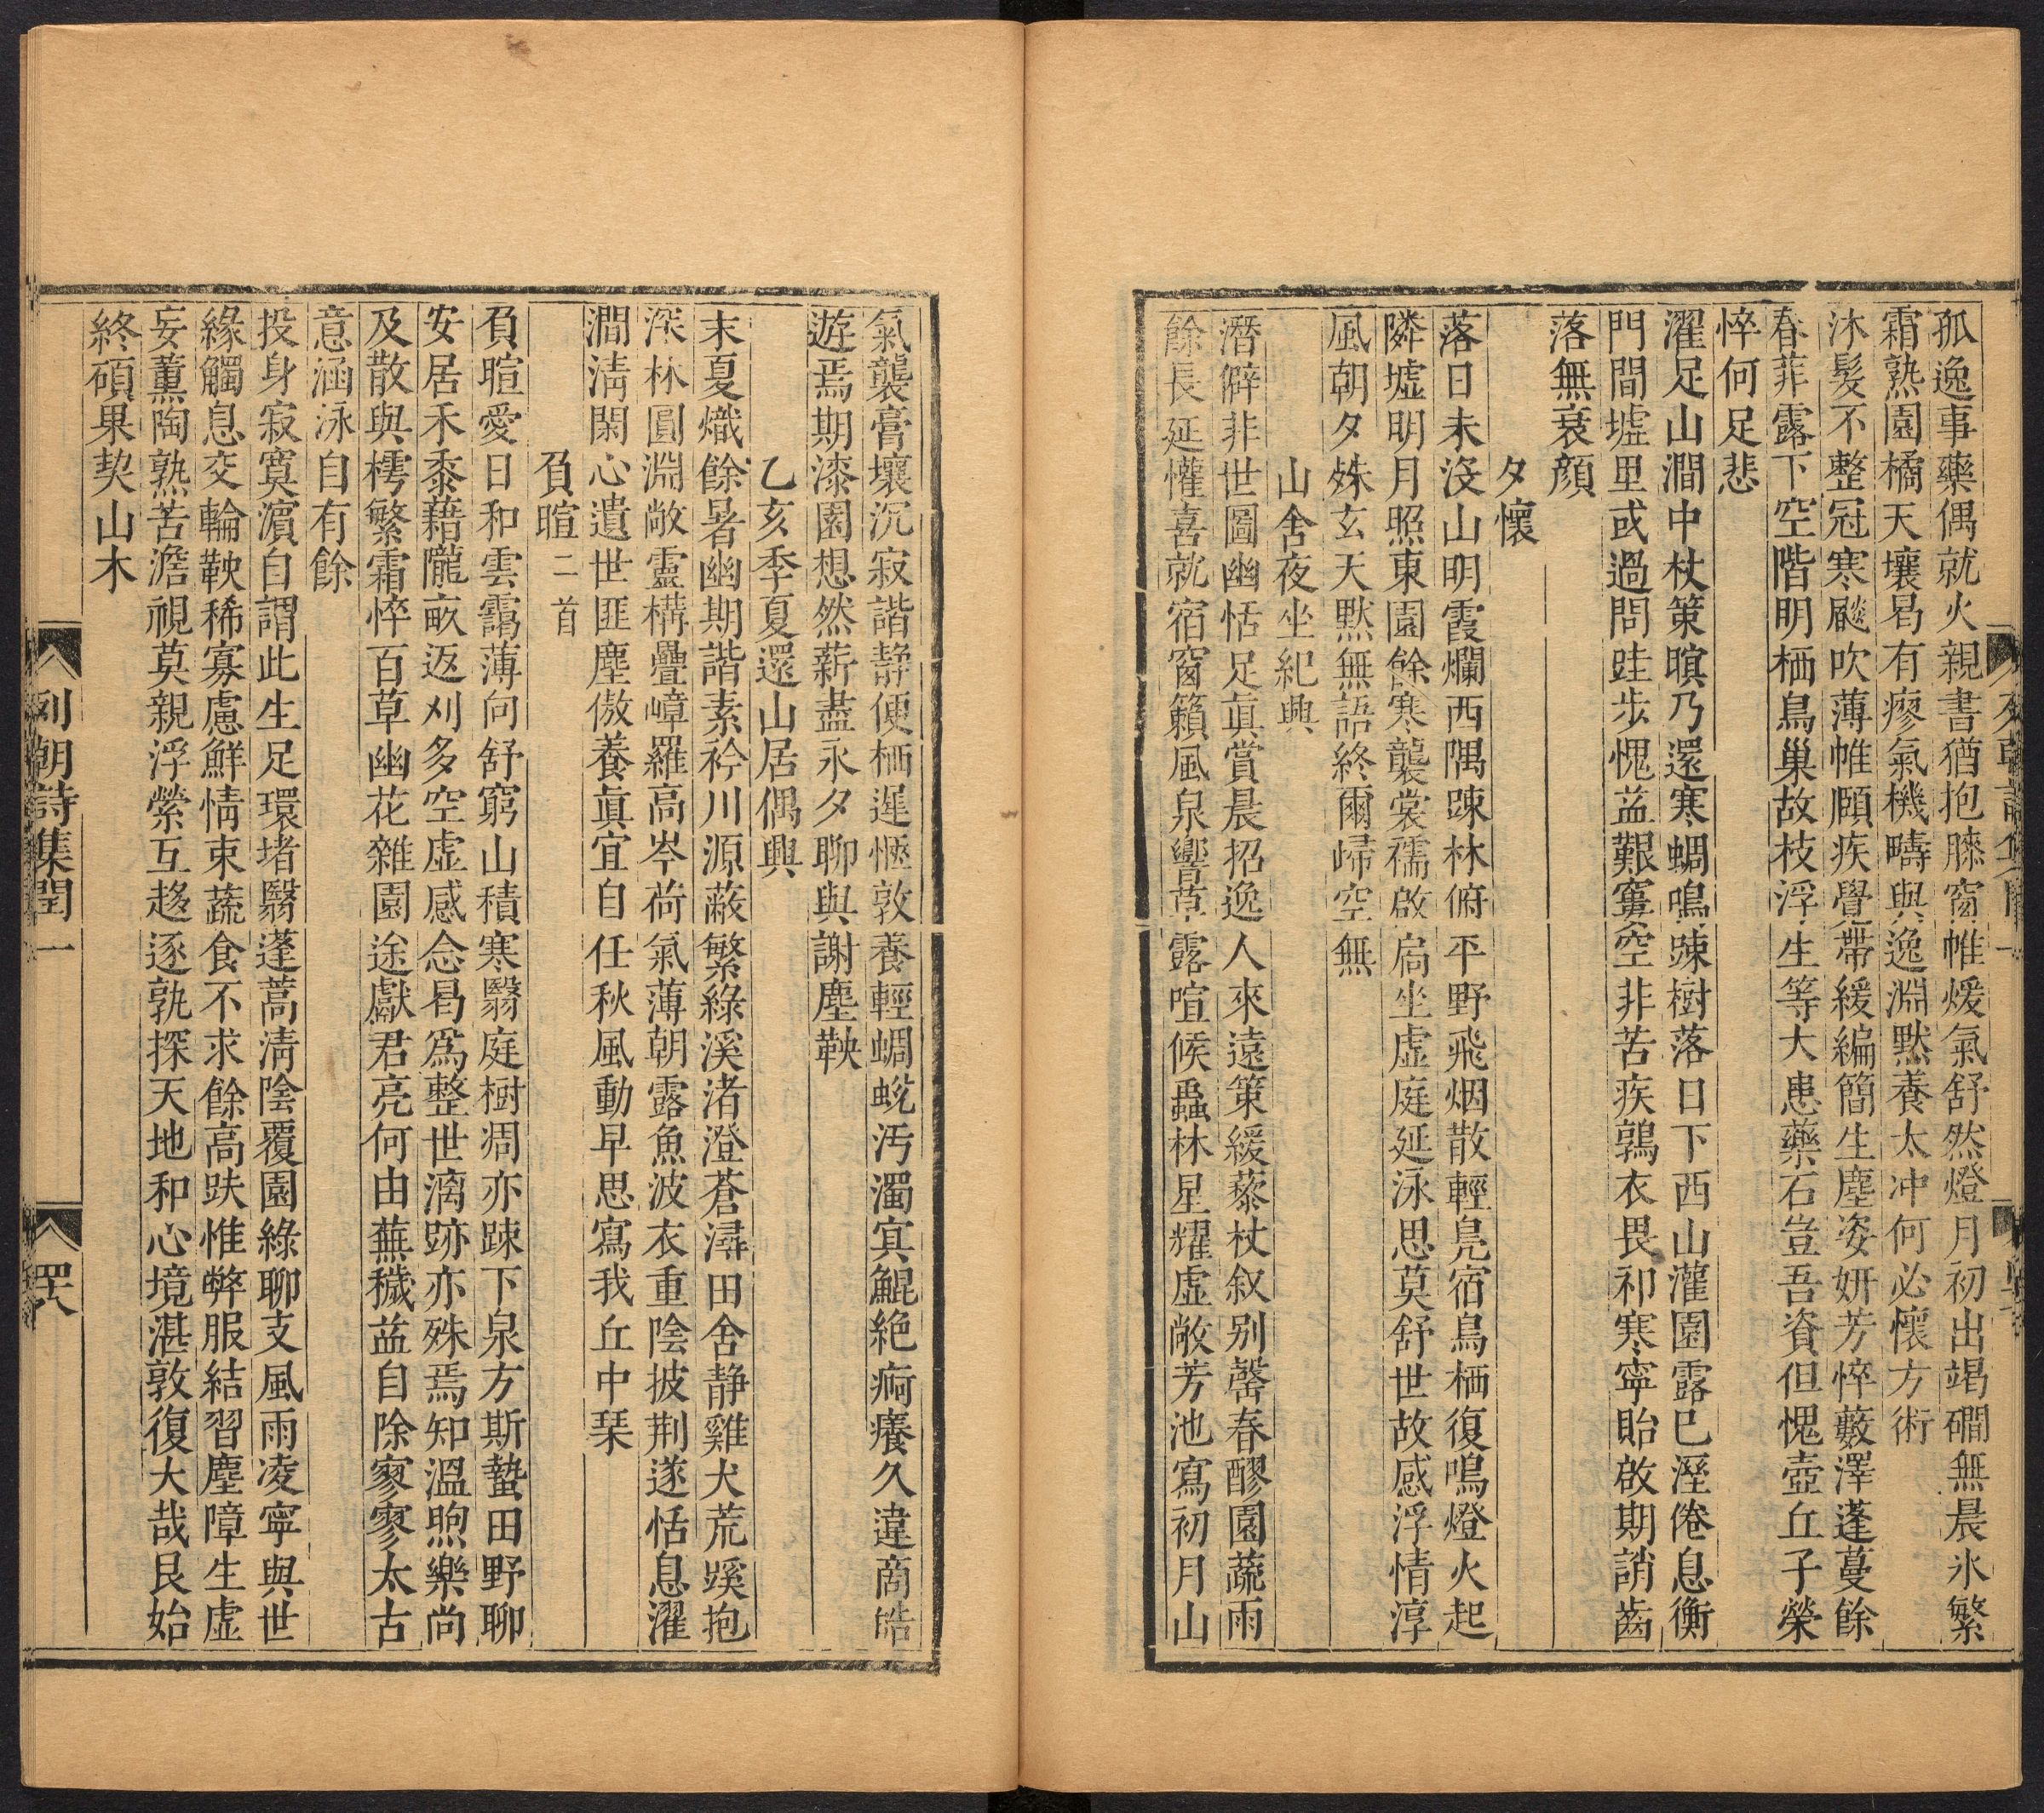 孤逸事藥偶就火親書猶抱膝窗帷煖氣舒然燈月初出竭磵無晨氷繁
霜熟園橘天壤曷有瘳氣機疇與逸淵默養太冲何必懷方術
沐髮不整冠寒飈吹薄帷頤疾覺帶緩編簡生塵姿妍芳悴藪澤蓬蔓餘
春菲露下空階明栖鳥巢故枝浮生等大患藥石豈吾資但愧壺丘子榮
悴何足悲
濯足山澗中杖策暝乃還寒蜩鳴踈樹落日下西山灌園露已溼倦息衡
門間墟里或過問跬步愧茲艱窶空非苦疾鶉衣畏祁寒寧貽啟期誚齒
落無衰顔
夕懷
落日未沒山明霞爛西隅踈林俯平野飛烟散輕鳬宿鳥栖復鳴燈火起
隣墟明月照東園餘寒襲裳襦啟扃坐虛庭延泳思莫舒世故感浮情淳
風朝夕殊玄天默無語終爾歸空無
山舍夜坐紀興
潛僻非世圖幽恬足眞賞晨招逸人來遠策緩藜杖叙別罄春醪園蔬雨
餘長延懽喜就宿窗籟風泉響草露喧候蟲林星耀虛敞芳池寫初月山
氣襲膏壤沉寂諧静便栖遲愜敦養輕蜩蛻汚濁寘鯤絶痾癢久違商皓
遊焉期漆園想然薪盡永夕聊與謝塵鞅
乙亥季夏還山居偶興
末夏熾餘暑幽期諧素衿川源蔽繁綠溪渚澄蒼潯田舍静雞犬荒蹊抱
深林圓淵敞靈構疊嶂羅高岑荷氣薄朝露魚波衣重陰披荆遂恬息濯
澗淸閑心遺世匪塵傲養眞宜自任秋風動早思寫我丘中琹
負暄二首
負暄愛日和雲靄薄向舒窮山積寒翳庭樹凋亦踈下泉方斯蟄田野聊
安居禾黍藉隴畝返刈多空虛感念曷爲整世漓跡亦殊焉知溫煦樂尚
及散與樗繁霜悴百草幽花雜園途獻君亮何由蕪穢茲自除寥寥太古
意涵泳自有餘
投身寂寞濵自謂此生足環堵翳蓬蒿淸陰覆園綠聊支風雨凌寧與世
緣觸息交輪鞅稀寡慮鮮情束蔬食不求餘高趺惟弊服結習塵障生虛
妄薰陶熟苦澹視莫親浮縈互趍逐孰探天地和心境湛敦復大哉艮始
終碩果契山木
列朝詩集閏一
四六